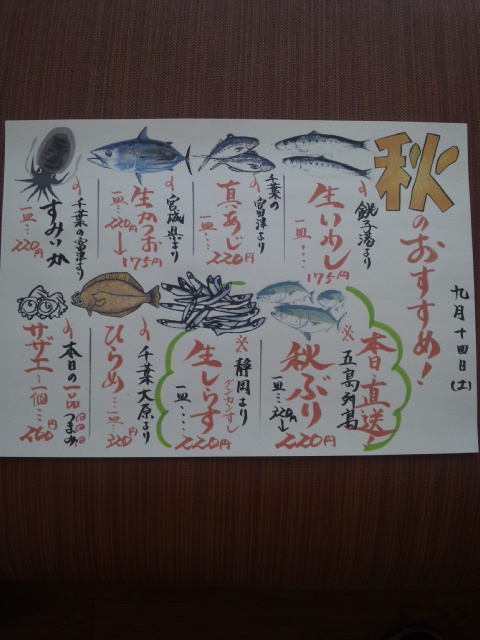 秋のおすすめ!
九月十四日(土)
銚子湾より
生いわし
一皿…175円
千葉の富津より
真あじ
一皿…220円
宮城県より
生かつお
一皿…220円→175円
千葉の富津より
すみいか
一皿…220円
本日直送!
※五島列島
秋ぶり
一皿…320円→220円
※静岡より
生しらす
グンカンすし
一皿…220円
千葉大原より
ひらめ
一皿…320円
本日の一品つまみ
サザエ…一個…260円